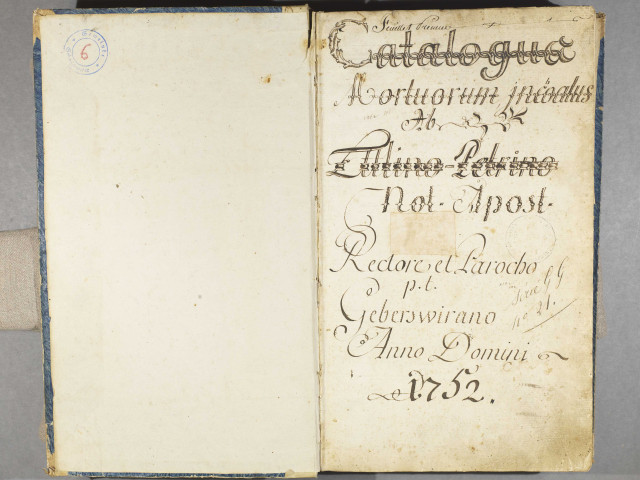 6
Feuillet Premier
Catalogus
Mortuorum incoatus
Ab
Tillino-Petrino
Not. Apost.
Rectore et Parocho
p.t.
Geberswirano
Anno Domini
1752.
Serie GG
no 21.